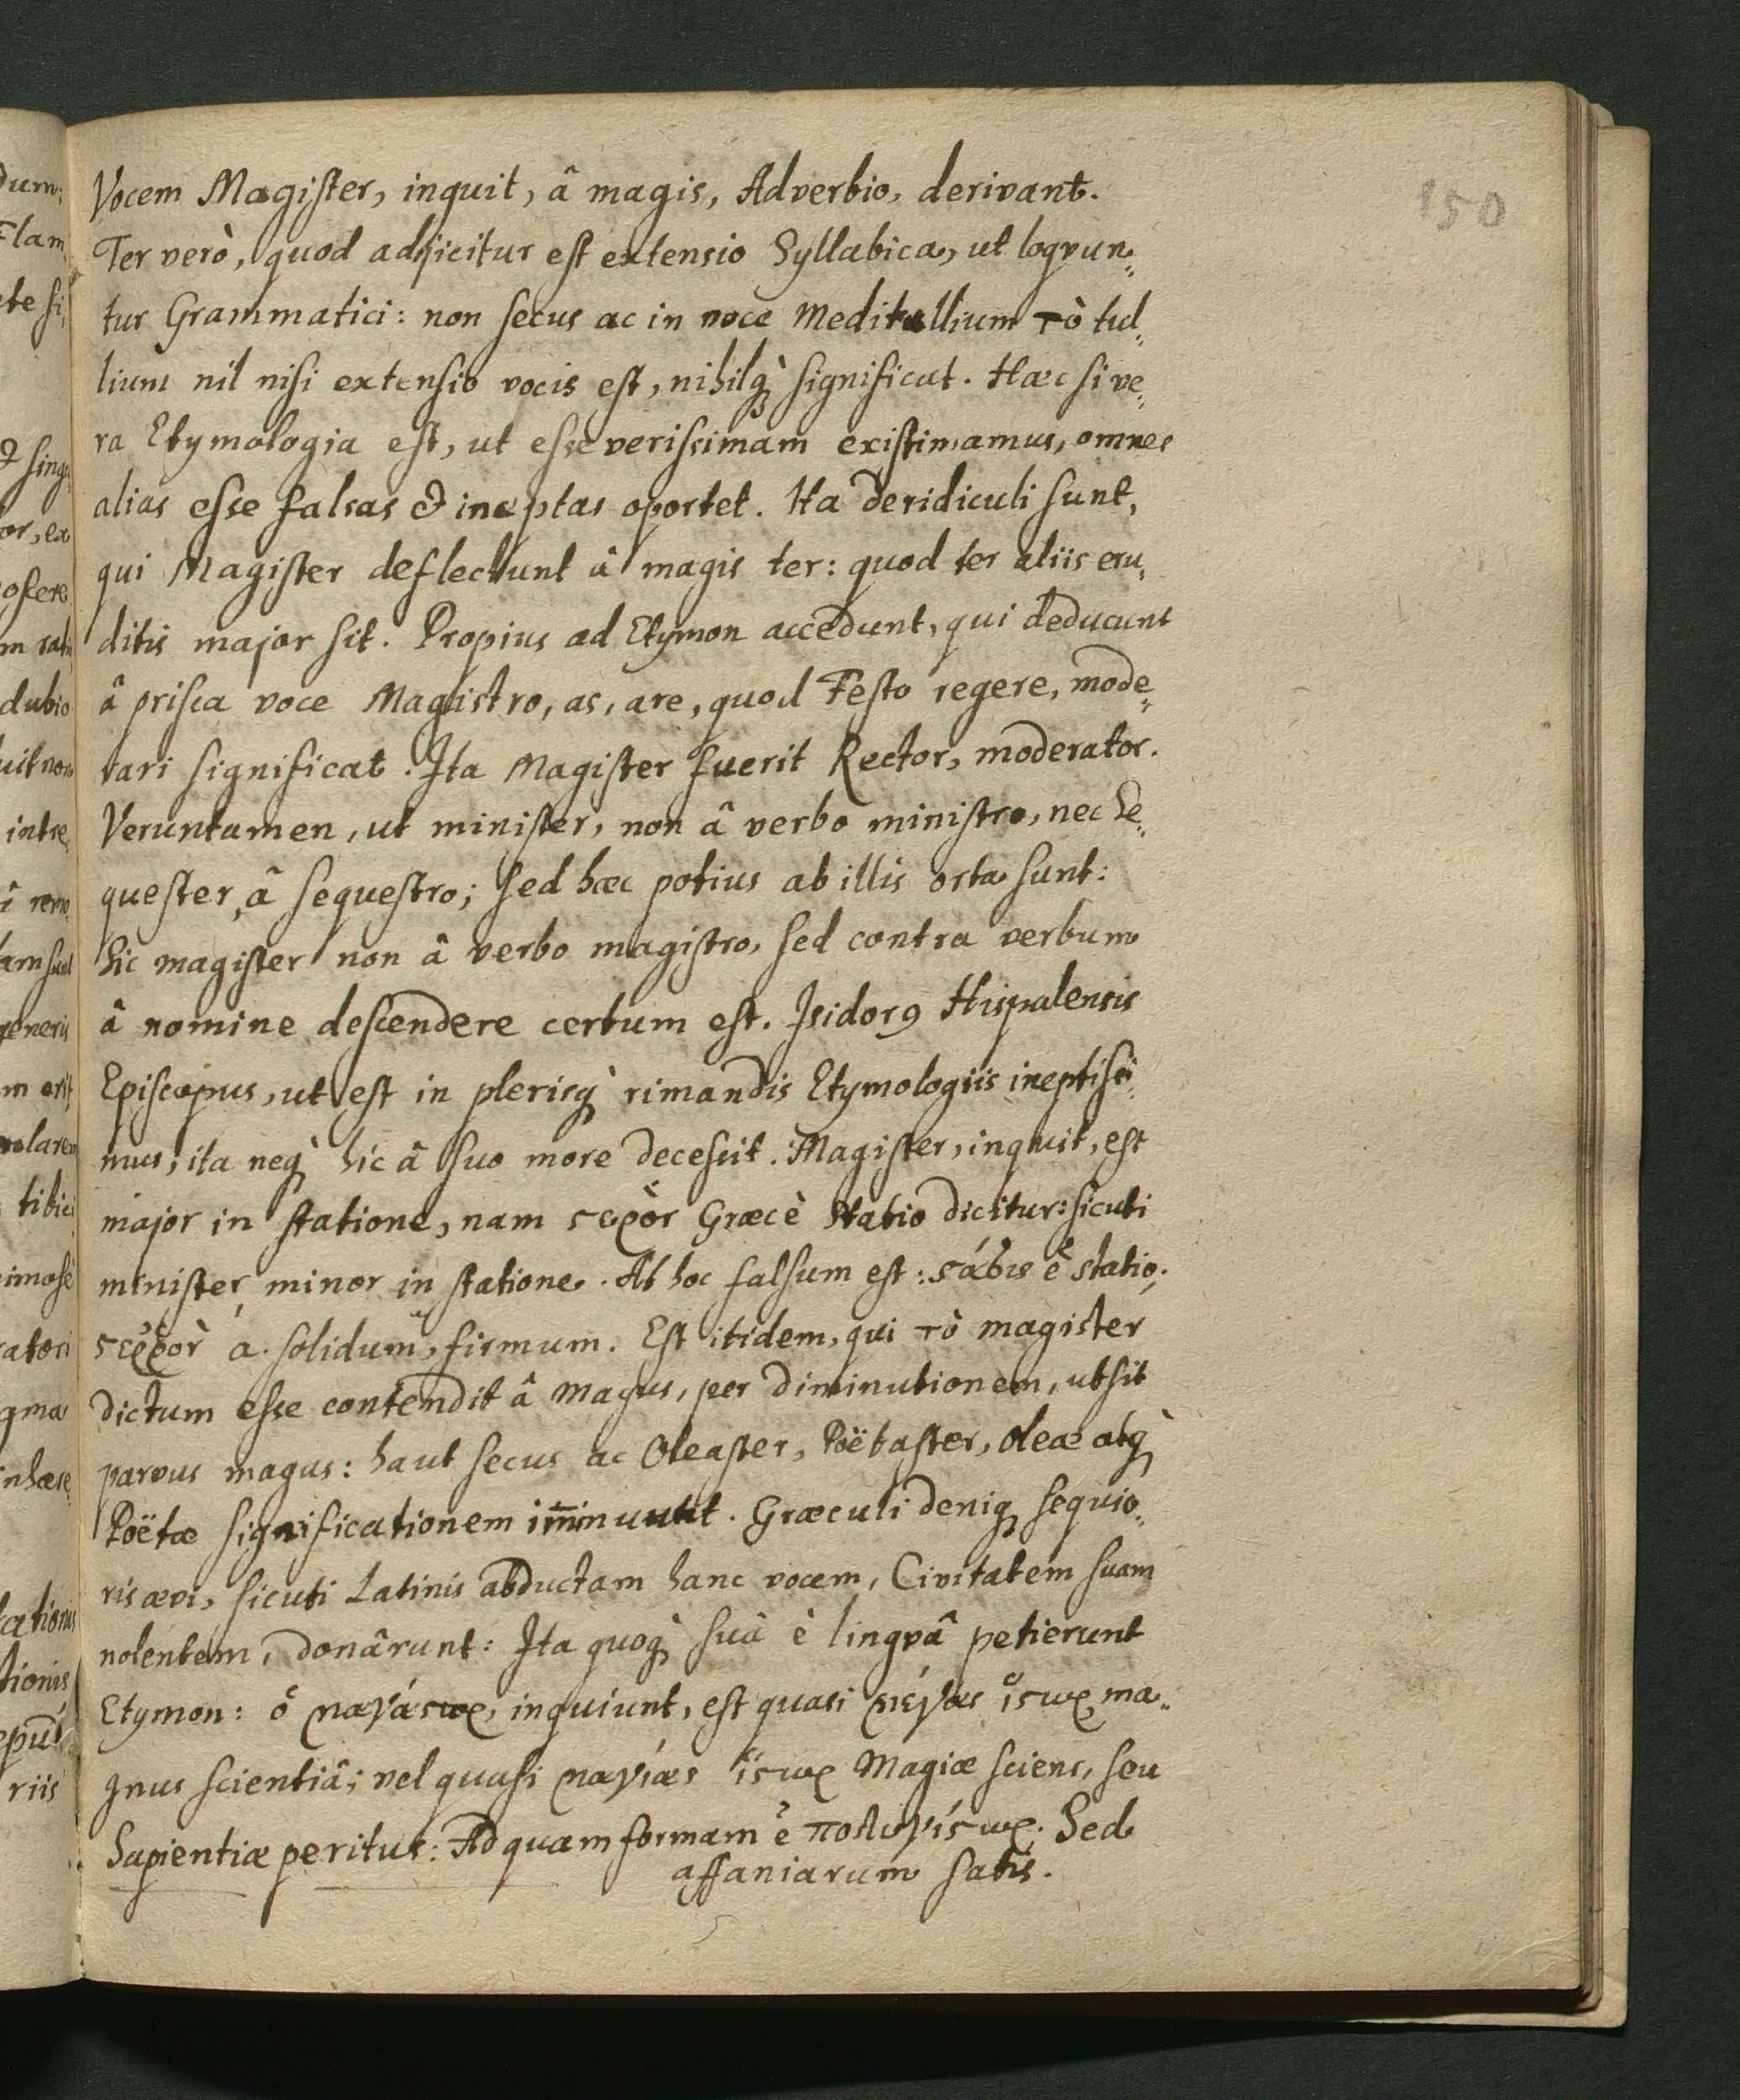 150
Vocem Magister, inquit, â magis, Adverbio, derivant.
Ter verò, quod adjicitur est extensio Syllabica, ut loqvun„
tur Grammatici: non secus ac in voce Meditullium τὸ tul„
lium nil nisi extensio vocis est, nihilq́ue significat. Hæc si ve„
ra Etymologia est, ut esse verissimam existimamus, omnes
alias esse falsas & ineptas oportet. Ita deridiculi sunt,
qui Magister deflectunt â magis ter: quod ter aliis eru„
ditis major sit. Propius ad Etymon accedunt, qui deducunt
â prisca voce Magistro, as, are, quod Festo regere, mode„
rari significat. Ita Magister fuerit Rector, moderator.
Veruntamen, ut minister, non â verbo ministro, nec Se„
quester, â sequestro; sed hæc potius ab illis orta sunt:
Sic magister non â verbo magistro, sed contra verbum
â nomine descendere certum est. Isidorꝰ Hispalensis
Episcopus, ut est in plerisq̀ rimandis Etymologiis ineptissi„
mus, ita neq̀ hic â suo more decessit. Magister, inquit, est
major in statione, nam ϛεῤὸν Græcè Statio dicitur: sicuti
minister minor in statione. At hoc falsum est: ϛάσις ê statio;
ϛεῤῥὸν a. solidum, firmum. Est itidem, qui τὸ magister
dictum esse contendit â Magus, per diminutionem, ut sit
parvus magus: haut secus ac Oleaster, Poëtaster, oleæ atq̀
Poëtæ significationem im̄inuunt. Græculi deniq; sequio„
ris ævi, sicuti Latinis abductam hanc vocem, Civitatem suam
nolentem, donârunt: Ita quoq̀ suâ è lingvâ petierunt
Etymon: ὁ μαγίϛωρ, inquiunt, est quasi μέγας ἵϛωρ, ma„
gnus scientiâ; vel quasi μαγίας ἵϛωρ Magiæ sciens, seu
Sapientiæ peritus: Ad quam formam ê πολυγίϛωρ. Sed
affaniarum satis.